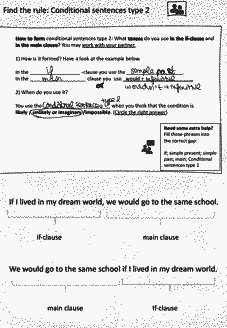 Find the rule: Conditional sentences type 2
How to form conditional sentences type 2: What tenses do you use in the if-clause and
in the main clause? You may work with your partner.
1) How is it formed? Have a look at the example below.
In the if -clause you use the simple past.
In the main clause you use would + infinitive
or
wouldn't + infinitive
2) When do you use it?
You use the Conditional sentences type 2 when you think that the condition is
likely / unlikely or imaginary / impossible. (Circle the right answer)
Need some extra help?
Fill these phrases into
the correct gap:
if; simple present; simple
past; main; Conditional
sentences type 2
If I lived in my dream world, we would go to the same school.
if-clause main clause
We would go to the same school if I lived in my dream world.
main clause if-clause